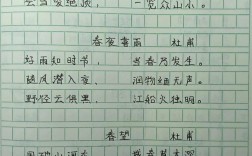 会当凌绝顶， 一览众山小。
春夜喜雨 杜甫
好雨知时节， 当春乃发生。
随风潜入夜， 润物细无声。
野径云俱黑， 江船火独明。
春望 杜甫
国破山河在， 城春草木深